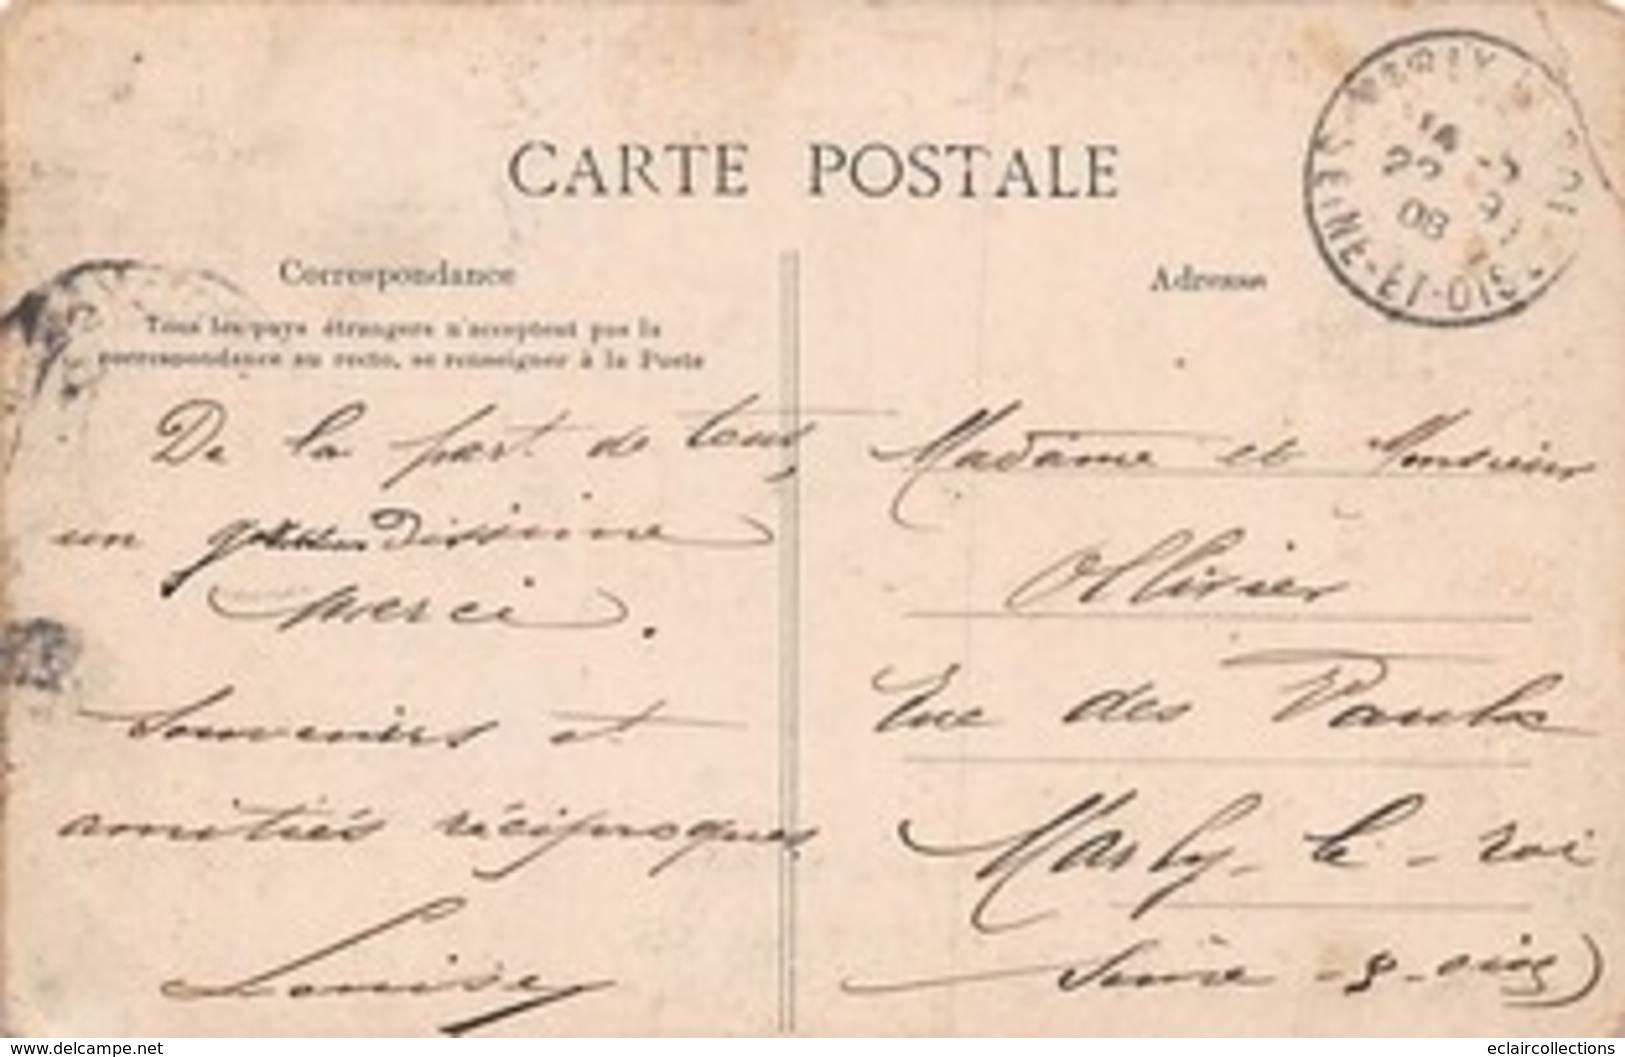 CARTE POSTALE
Correspondance
Tous les pays étrangers n'acceptent pas la
correspondance au recto, se renseigner à la Poste
De la part de tous,
un grandissime
merci.
Souvenirs et
amitiés réciproques
Louise
Adresse
Madame et Monsieur
Ollivier
Rue des Vaulx
Marly-le-roi
Seine-&-oise)
MARLY-LE-ROI
SEINE-ET-OISE
22
08
www.delcampe.net
eclaircollections